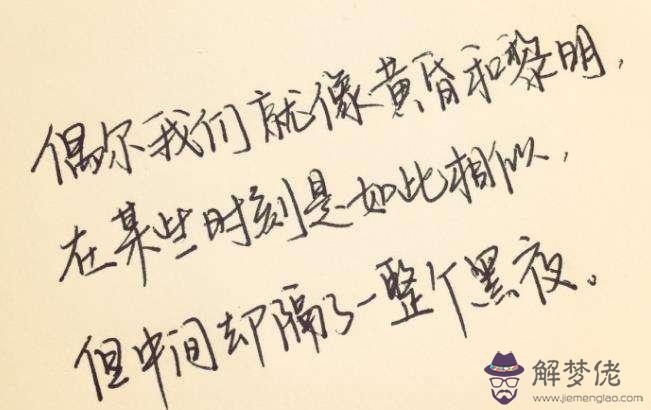 偶尔我们就像黄昏和黎明，
在某些时刻是如此相似，
但中间却隔了一整个黑夜。
解梦佬
www.jiemenglao.com